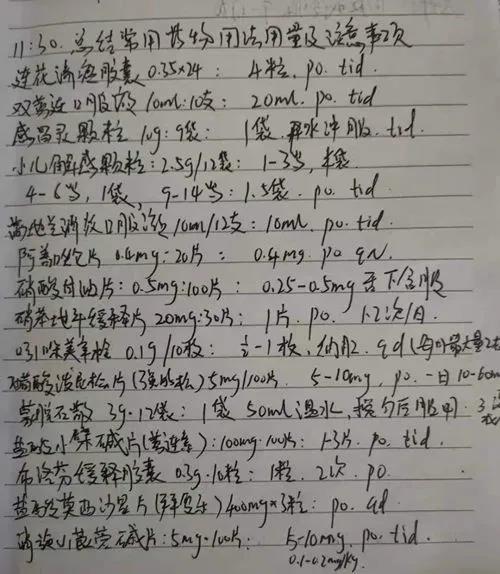 11:30. 总结常用药物用法用量及注意事项
连花清瘟胶囊 0.35×24 : 4粒. po. tid.
双黄连口服液 10ml:10支 : 20ml. po. tid
感冒灵颗粒 10g:9袋 : 1袋. 开水冲服. tid.
小儿解感颗粒 : 2.5g/12袋 : 1-3岁, 半袋
4-6岁, 1袋, 9-14岁 : 1.5袋. po. tid
蒲地兰消炎口服液 10ml/12支 : 10ml. po. tid.
片 0.4mg:20片 : 0.4mg. po qN.
硝酸甘油片 : 0.5mg:100片 : 0.25-0.5mg 舌下含服
硝苯地平缓释片 20mg:30片 : 1片. po. 1-2次/日.
吲哚美辛栓 0.1g/10枚 : ½-1枚, 纳肛. qd (每日最大量2枚
醋酸泼尼松片 (强的松) 5mg/100片. 5-10mg, po. 一日10-60m
蒙脱石散 3g·12袋 : 1袋 50ml温水, 搅匀后服用. 3
盐酸小檗碱片 (黄连素) : 100mg·100片 : 1-3片. po. tid.
布洛芬缓释胶囊 0.3g·10粒 : 1粒. 2次. po.
盐酸莫西沙星片 (拜复乐) 400mg×3粒 : po. qd.
消旋山莨菪碱片 : 5mg·100片 : 5-10mg. po. tid.
0.1-0.2mg/kg.